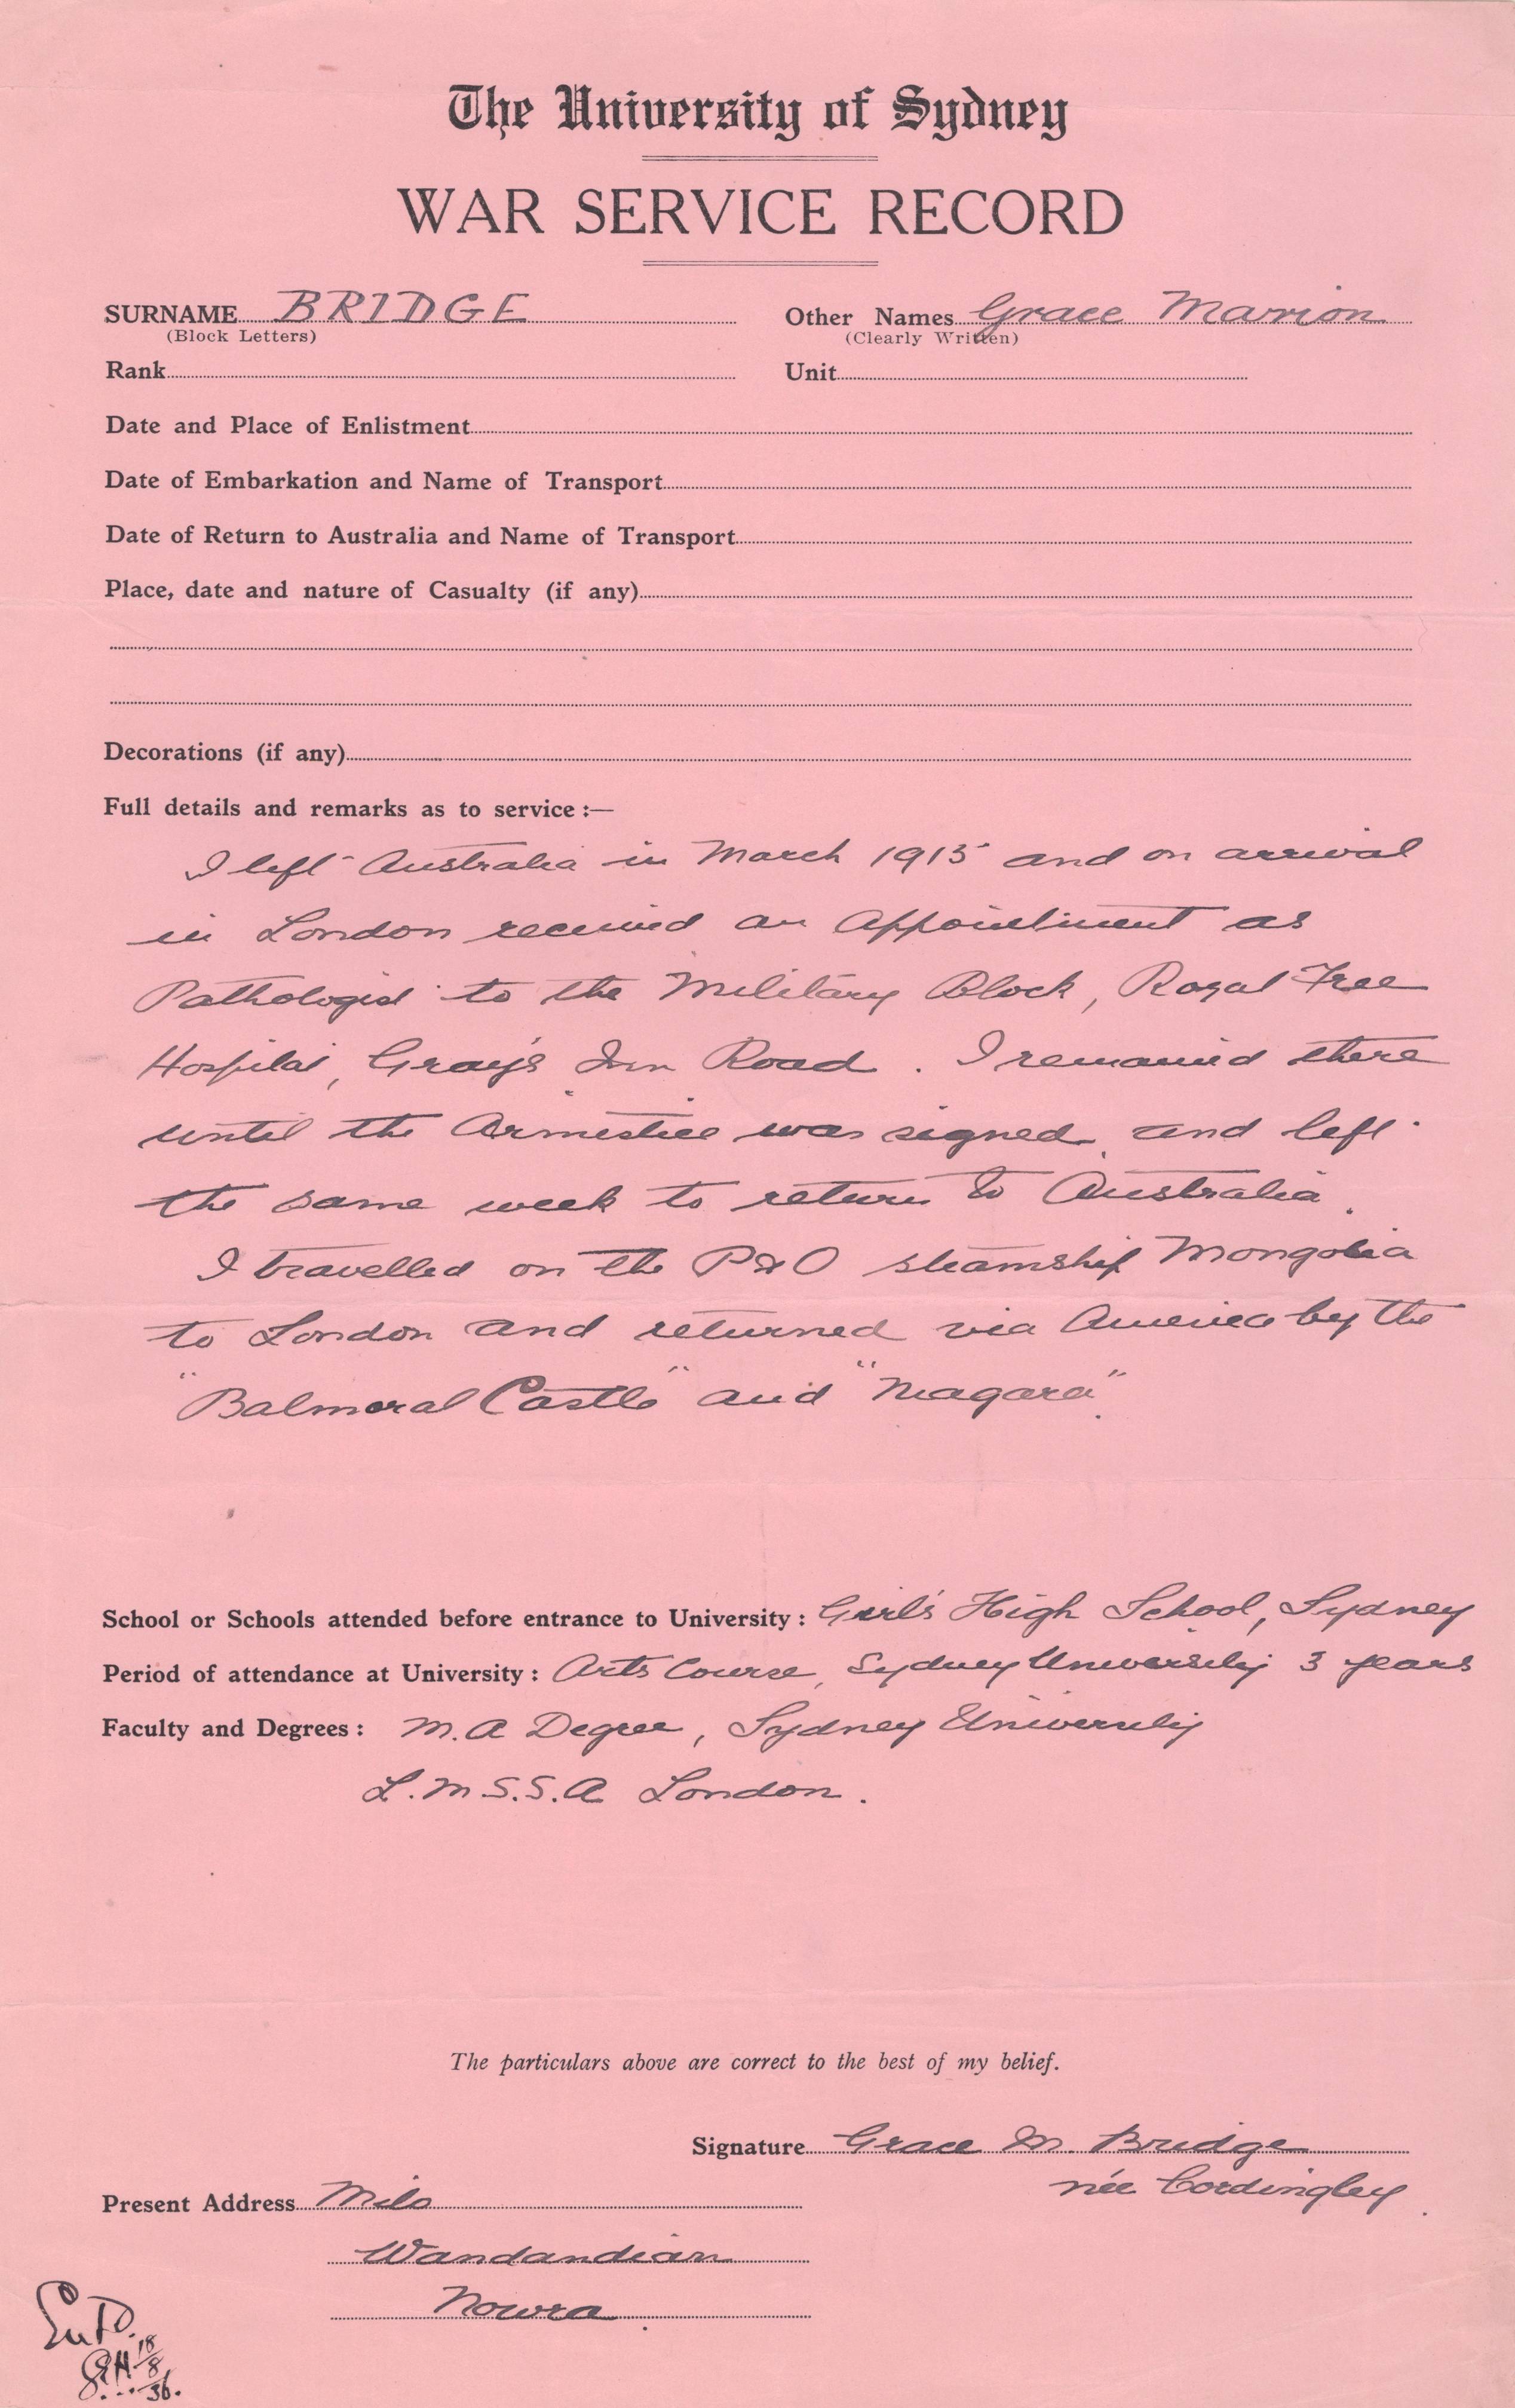 The University of Sydney
WAR SERVICE RECORD
SURNAME BRIDGE Other Names Grace Marion
(Block Letters) (Clearly Written)
Rank Unit
Date and Place of Enlistment
Date of Embarkation and Name of Transport
Date of Return to Australia and Name of Transport
Place, date and nature of Casualty (if any)
Decorations (if any)
Full details and remarks as to service :—
I left Australia in March 1915 and on arrival
in London received an appointment as
Pathologist to the Military Block, Royal Free
Hospital, Gray's Inn Road. I remained there
until the Armistice was signed and left
the same week to return to Australia.
I travelled on the P&O steamship Mongolia
to London and returned via America by the
"Balmoral Castle" and "Niagara".
School or Schools attended before entrance to University : Girl's High School, Sydney
Period of attendance at University : Arts Course, Sydney University 3 years
Faculty and Degrees : M.A Degree, Sydney University
L.M.S.S.A London.
The particulars above are correct to the best of my belief.
Signature Grace M. Bridge
née Cordingley.
Present Address Milo
Wandandian
Nowra.
18/8/36.